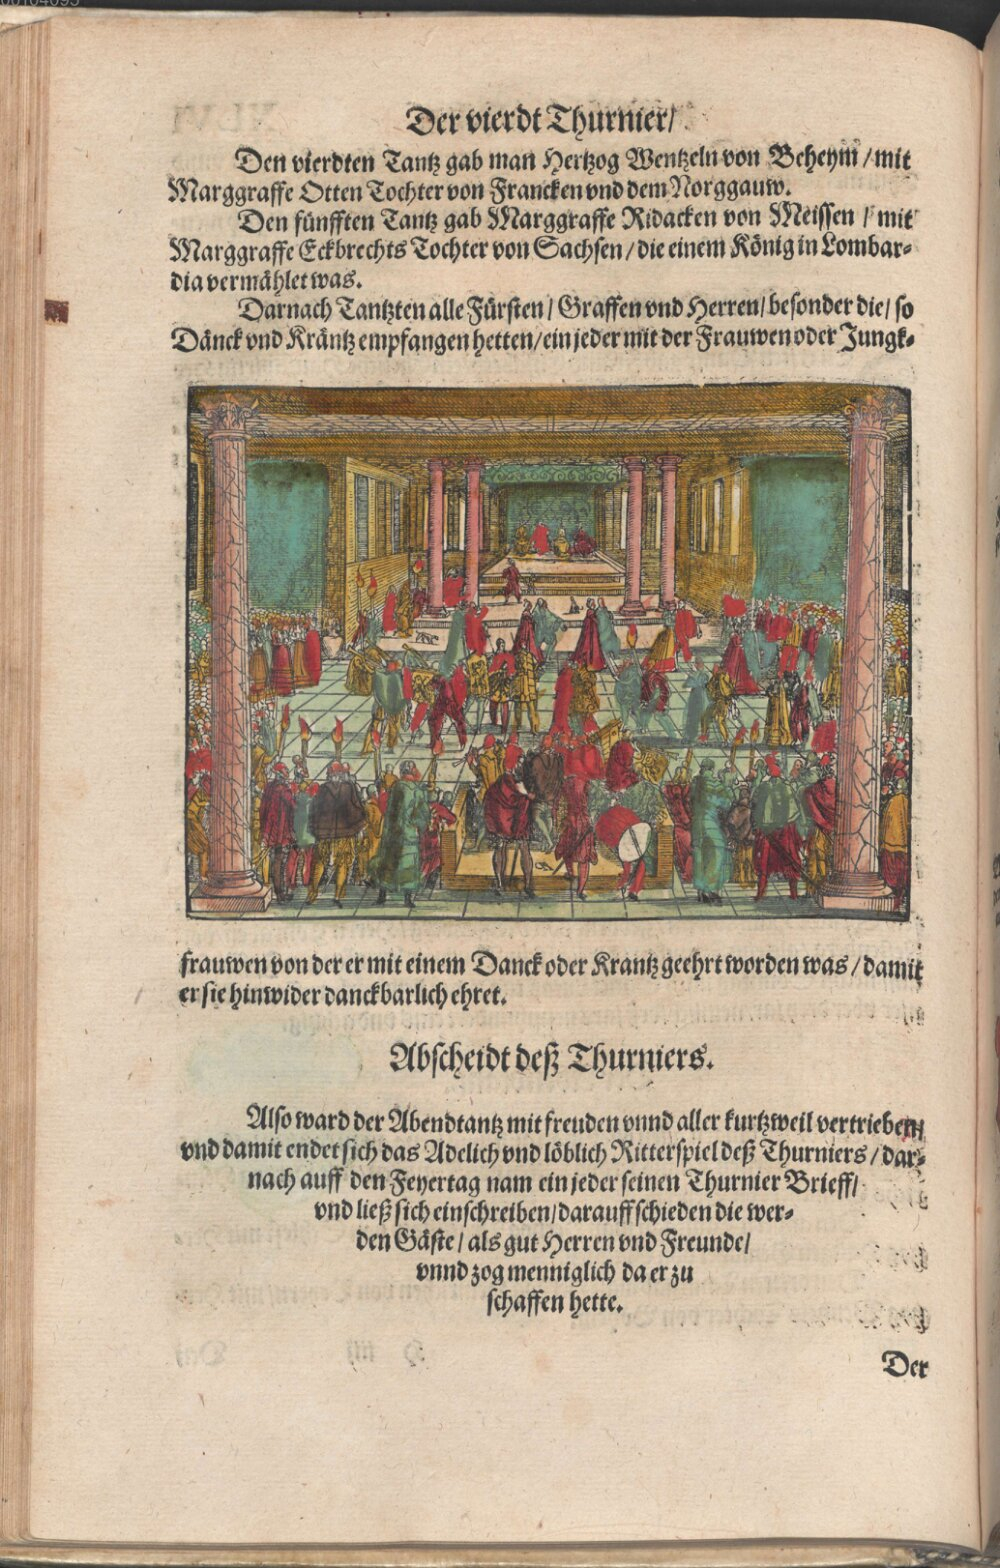 Der vierdt Thurnier/
Den vierdten Tantz gab man Hertzog Wentzeln von Beheym/mit
Marggraffe Otten Tochter von Francken vnd dem Norggauw.
Den fünfften Tantz gab Marggraffe Ridacken von Meissen / mit
Marggraffe Eckbrechts Tochter von Sachsen/die einem König in Lombar-
dia vermählet was.
Darnach Tantzten alle Fürsten/ Graffen vnd Herren/besonder die/ so
Dänck vnd Kräntz empfangen hetten/ein jeder mit der Frauwen oder Jungk-
frauwen von der er mit einem Danck oder Krantz geehrt worden was/damit
er sie hinwider danckbarlich ehret.
Abscheidt deß Thurniers.
Also ward der Abendtantz mit freuden vnnd aller kurtzweil vertrieben
vnd damit endet sich das Adelich vnd löblich Ritterspiel deß Thurniers/dar-
nach auff den Feyertag nam ein jeder seinen Thurnier Brieff/
vnd ließ sich einschreiben/darauff schieden die wer-
den Gäste/ als gut Herren vnd Freunde/
vnnd zog menniglich da er zu
schaffen hette.
Der